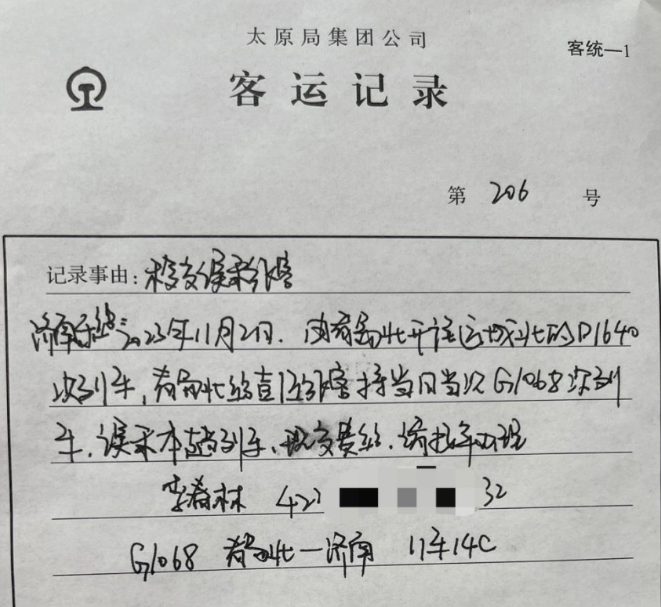 太原局集团公司
客统—1
客运记录
第 206 号
记录事由：移交误乘旅客
济南西站：2023年11月2日，由青岛北开往运城北的D1640
次列车，青岛北站直验旅客持当日当次G1068次列
车，误乘本趟列车，现交贵站，请按章办理
李春林 422 32
G1068 青岛北—济南 11车14C